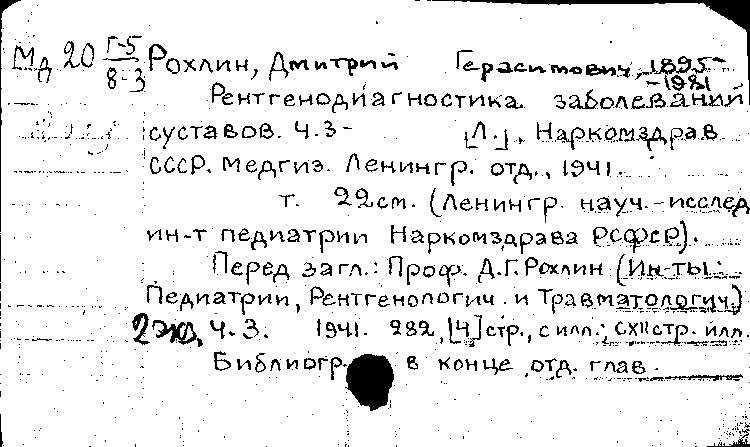 Мд 20 Г-5/8-3 Рохлин, Дмитрий Герасимович, 1895-
-1981
Рентгенодиагностика заболеваний
суставов. Ч.3- [Л.], Наркомздрав
СССР. Медгиз. Ленингр. отд., 1941.
т. 22см. (Ленингр. науч.-исслед
ин-т педиатрии Наркомздрава РСФСР).
Перед загл.: Проф. Д.Г. Рохлин (Ин-ты:
Педиатрии, Рентгенологич. и Травматологич)
2 экз. Ч.3. 1941. 282, [4] стр., с илл.; CXII стр. илл.
Библиогр. в конце отд. глав.